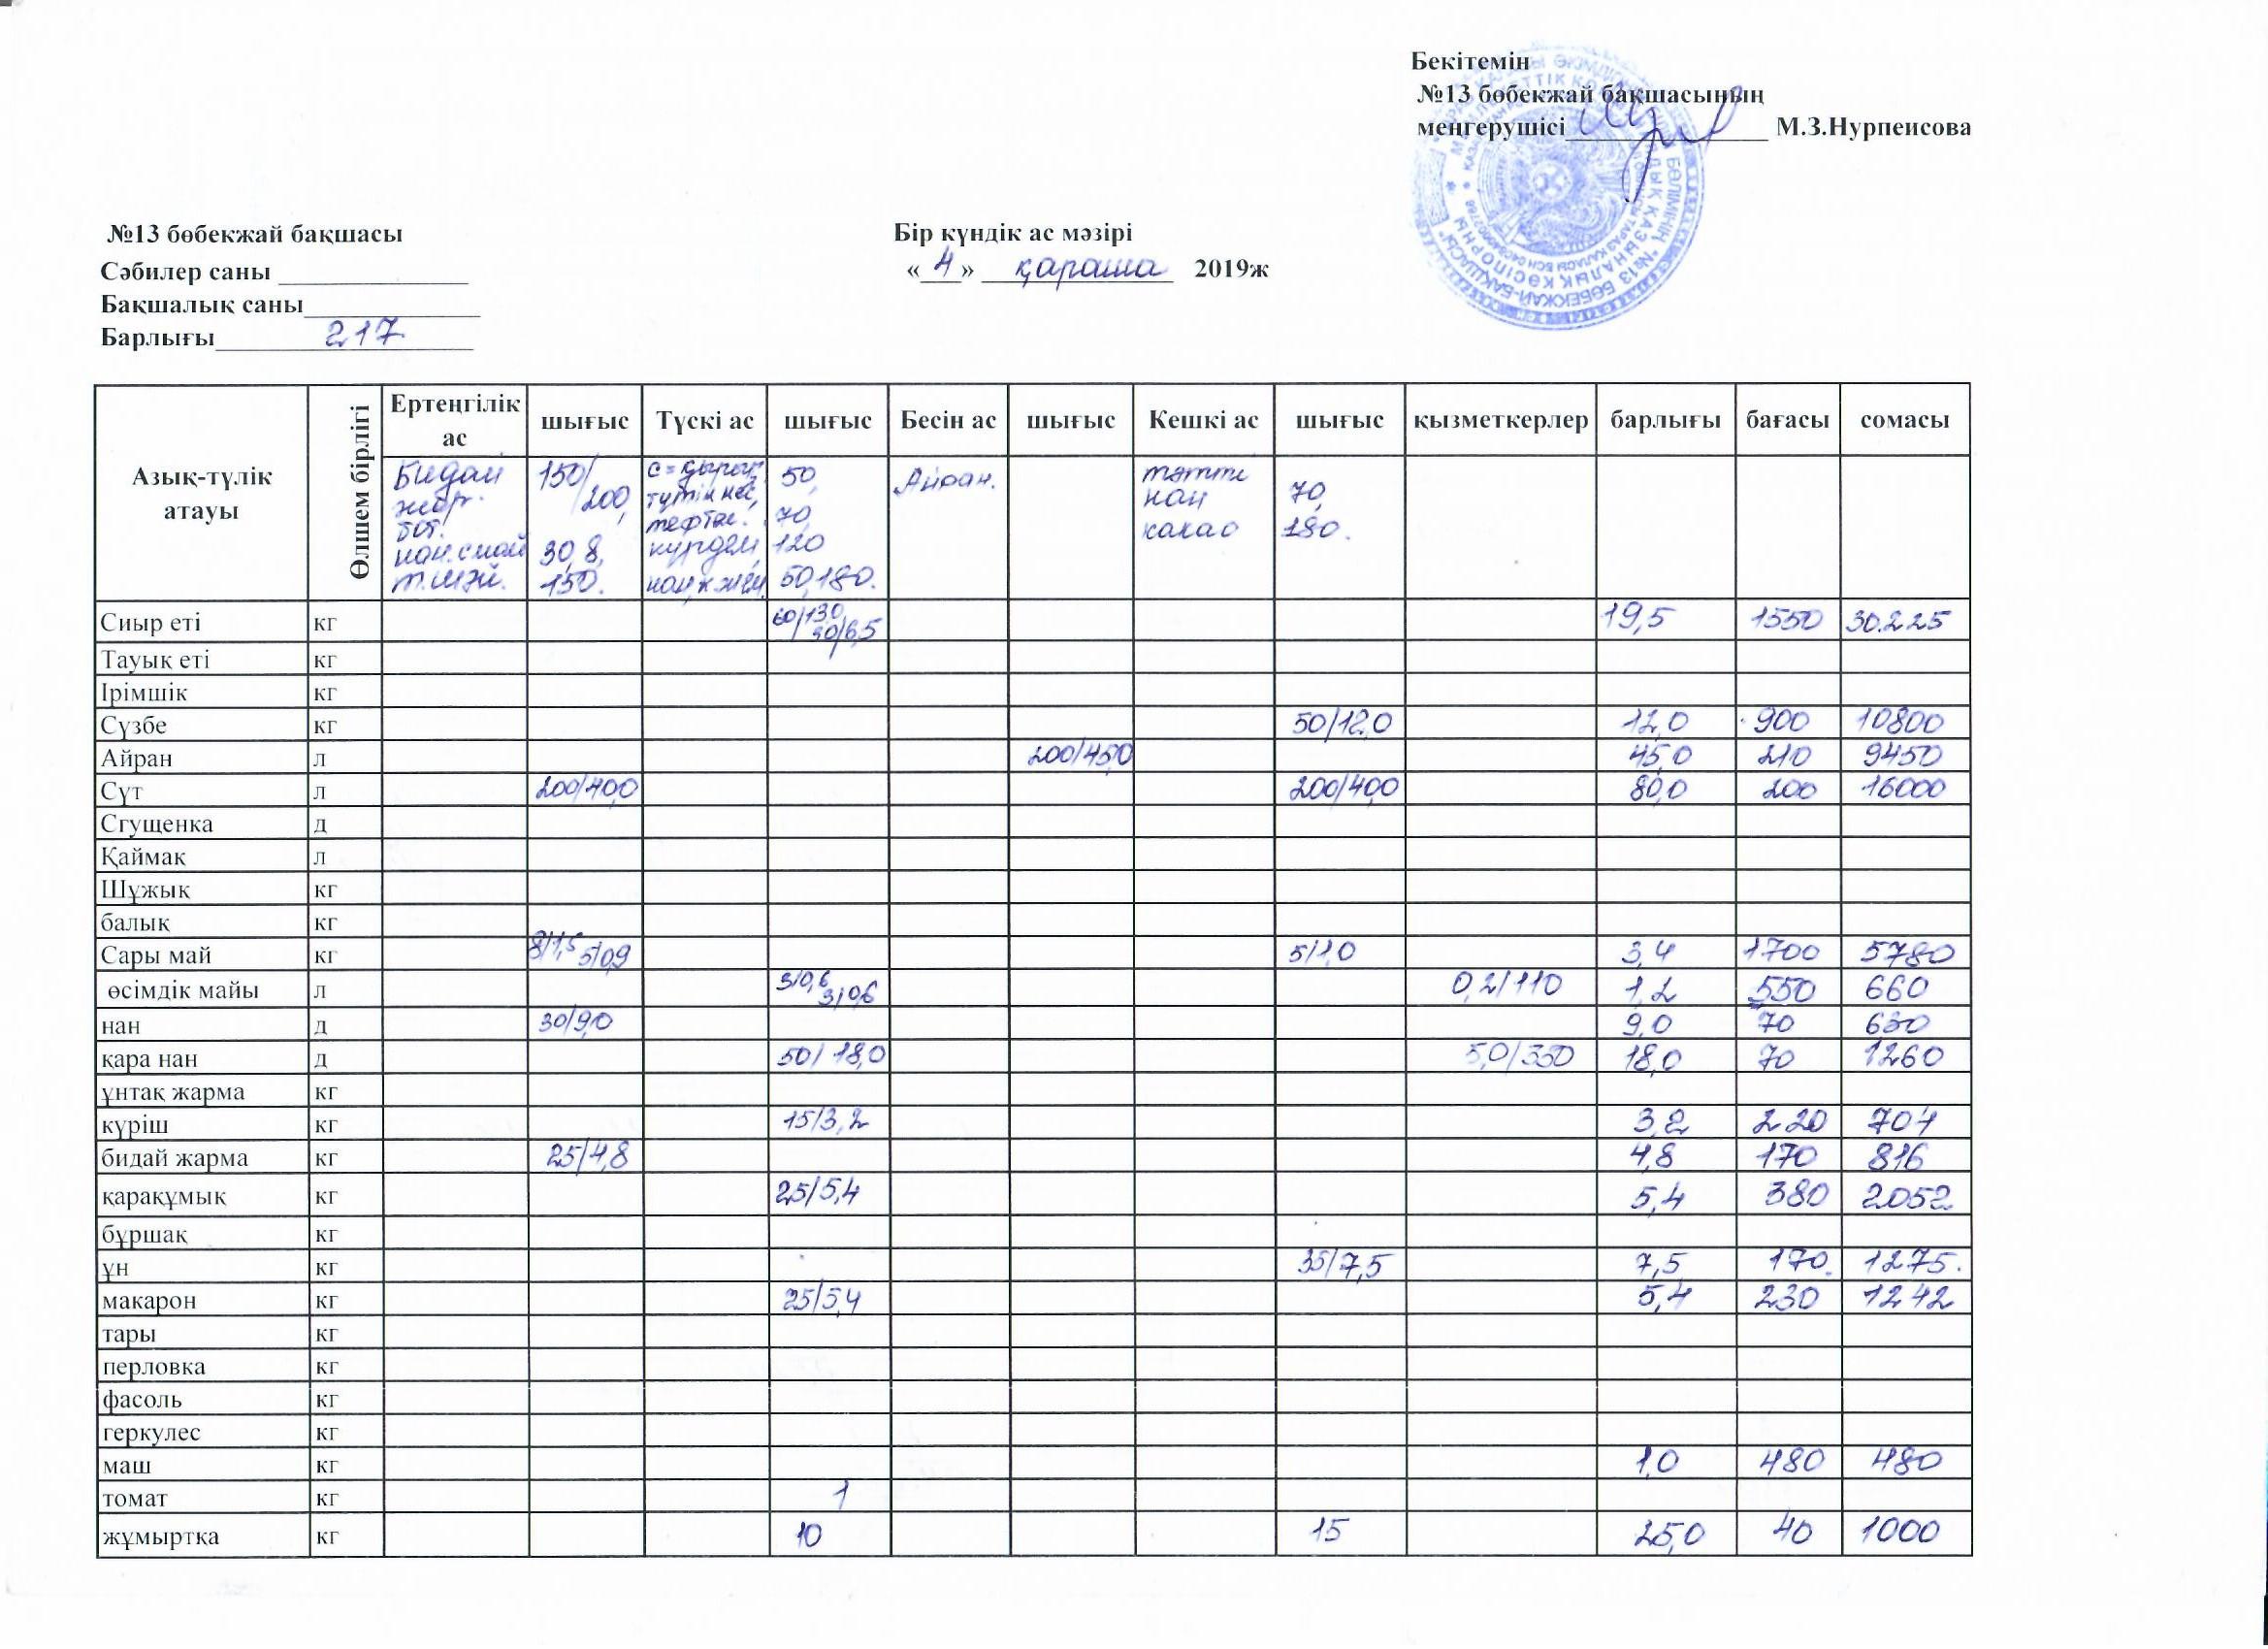 Бекітемін
№13 бөбекжай бақшасының
меңгерушісі______________ М.З.Нурпеисова
№13 бөбекжай бақшасы
Бір күндік ас мәзірі
Сәбилер саны ______________
« 4 » қараша 2019ж
Бақшалық саны_____________
Барлығы 217
Азық-түлік атауы Өлшем бірлігі Ертеңгілік ас шығыс Түскі ас шығыс Бесін ас шығыс Кешкі ас шығыс қызметкерлер барлығы бағасы сомасы
Бидай 150/ 50, Айран. тәтті
200, нан 70,
бот. 70, какао 180.
30, 8, 120
150. 50,180.
Сиыр еті кг 60/13,0 30/6,5 19,5 1550 30.225
Тауық еті кг
Ірімшік кг
Сүзбе кг 50/12,0 12,0 900 10800
Айран л 200/45,0 45,0 210 9450
Сүт л 200/40,0 200/40,0 80,0 200 16000
Сгущенка д
Қаймақ л
Шұжық кг
балық кг
Сары май кг 8/1,5 5/0,9 5/1,0 3,4 1700 5780
өсімдік майы л 3/0,6 3/0,6 0,2/110 1,2 550 660
нан д 30/9,0 9,0 70 630
қара нан д 50/18,0 5,0/350 18,0 70 1260
ұнтақ жарма кг
күріш кг 15/3,2 3,2 220 704
бидай жарма кг 25/4,8 4,8 170 816
қарақұмық кг 25/5,4 5,4 380 2052
бұршақ кг
ұн кг 35/7,5 7,5 170. 1275.
макарон кг 25/5,4 5,4 230 1242
тары кг
перловка кг
фасоль кг
геркулес кг
маш кг 1,0 480 480
томат кг 1
жұмыртқа кг 10 15 25,0 40 1000